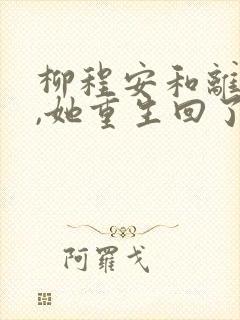 柳程安和離
,她重生回了
阿羅戈